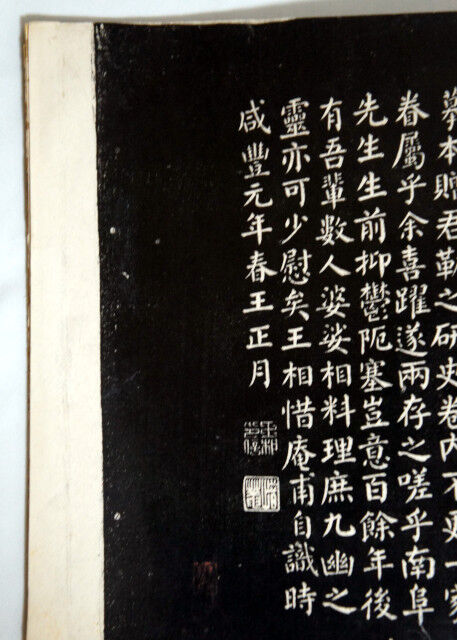 摹本贈君勒之研史卷内不更一家
眷屬乎余喜躍遂兩存之嗟乎南阜
先生生前抑鬱阨塞豈意百餘年後
有吾輩數人婆娑相料理庶九幽之
靈亦可少慰矣王相惜庵甫自識時
咸豐元年春王正月